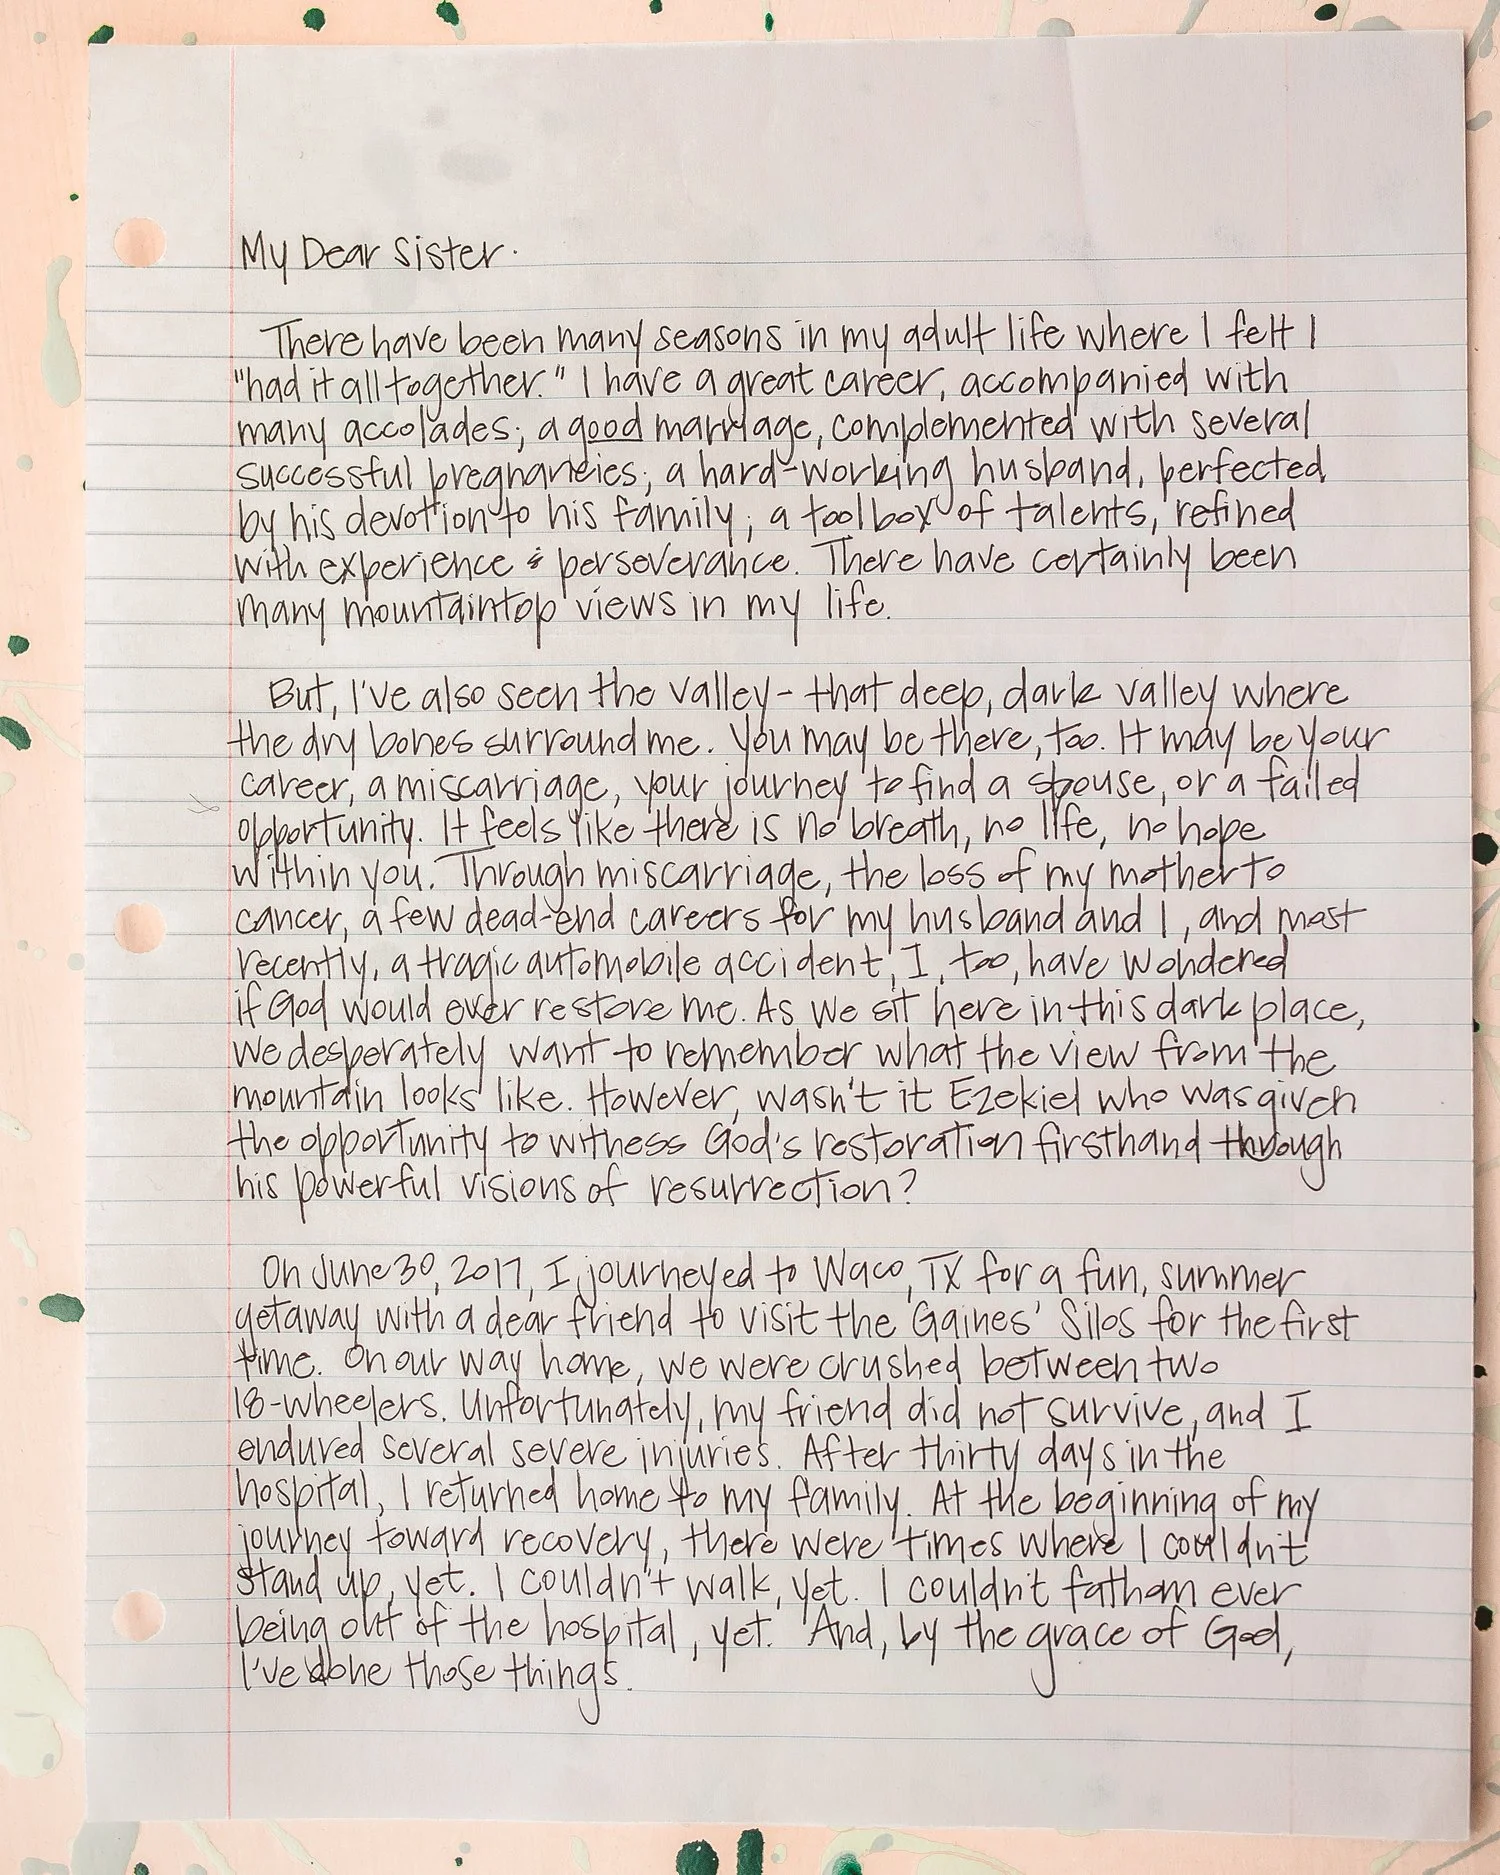 My Dear Sister.
There have been many seasons in my adult life where I felt I
"had it all together." I have a great career, accompanied with
many accolades; a good marriage, complemented with several
successful pregnancies; a hard-working husband, perfected
by his devotion to his family; a toolbox of talents, refined
with experience & perseverance. There have certainly been
many mountaintop views in my life.
But, I've also seen the valley - that deep, dark valley where
the dry bones surround me. You may be there, too. It may be your
career, a miscarriage, your journey to find a spouse, or a failed
opportunity. It feels like there is no breath, no life, no hope
within you. Through miscarriage, the loss of my mother to
cancer, a few dead-end careers for my husband and I, and most
recently, a tragic automobile accident, I, too, have wondered
if God would ever restore me. As we sit here in this dark place,
we desperately want to remember what the view from the
mountain looks like. However, wasn't it Ezekiel who was given
the opportunity to witness God's restoration firsthand through
his powerful visions of resurrection?
On June 30, 2017, I journeyed to Waco, TX for a fun, summer
getaway with a dear friend to visit the Gaines' Silos for the first
time. On our way home, we were crushed between two
18-wheelers. Unfortunately, my friend did not survive, and I
endured several severe injuries. After thirty days in the
hospital, I returned home to my family. At the beginning of my
journey toward recovery, there were times where I couldn't
stand up, yet. I couldn't walk, yet. I couldn't fathom ever
being out of the hospital, yet. And, by the grace of God,
I've done those things.